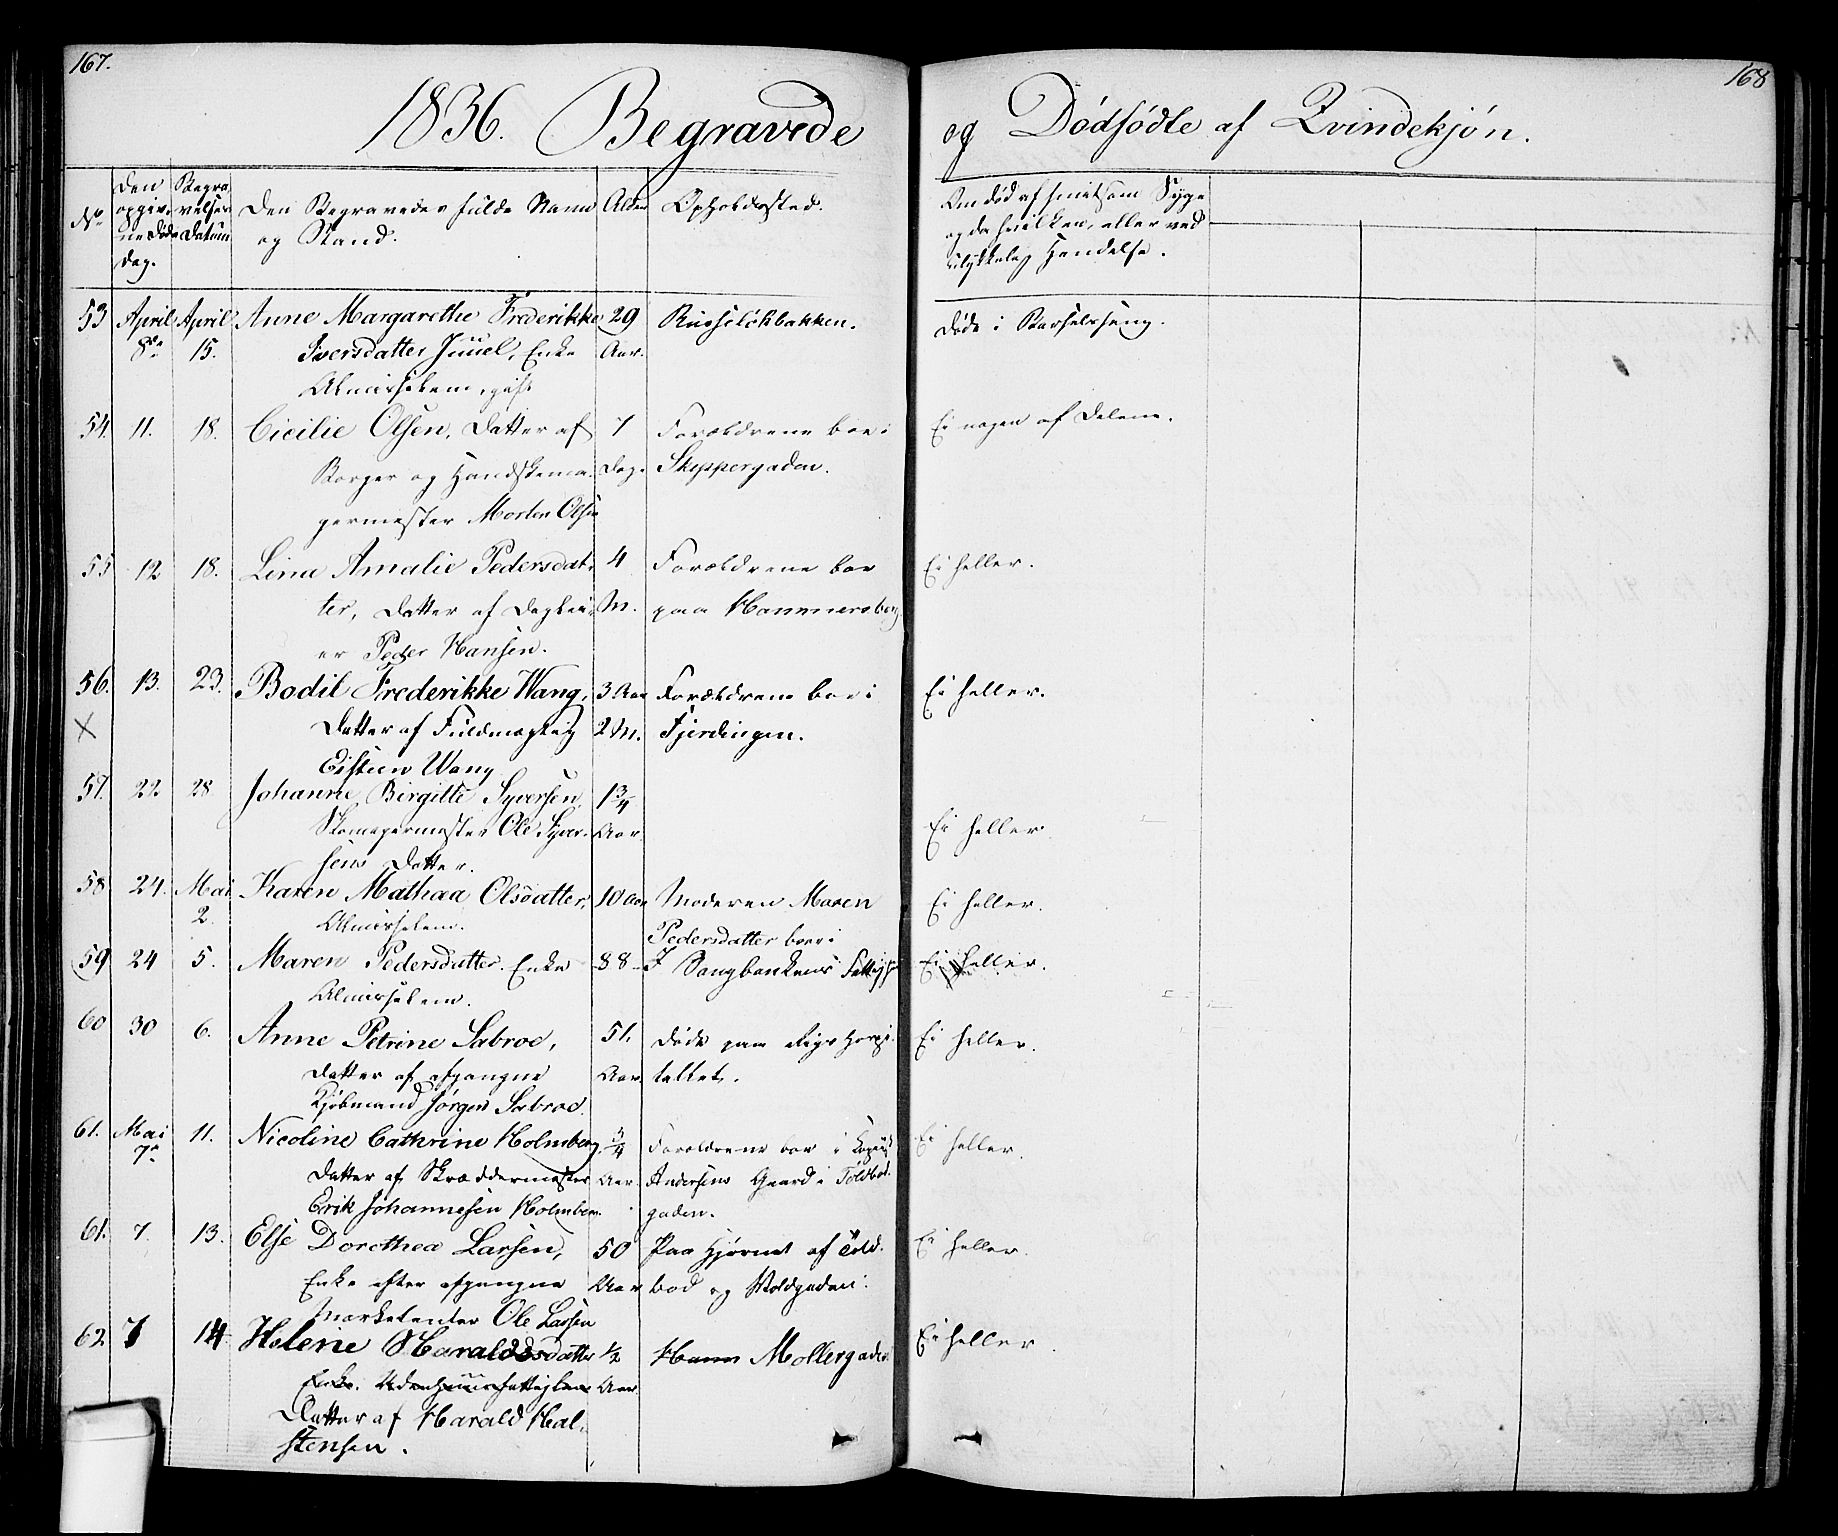 167.
168
1836. Begravede
og Dödfödte af Qvindekjön.
No
Den opgivne Døds Dag.
Begravelses Datum
Den Begravedes fulde Navn og Stand.
Alder
Opholdssted.
Om død af smitsom Syge og da hvilken, eller ved ulykkelig Hændelse.
53 April 8de April 15. Anne Margarethe Frederikke 29 Ruseløkbakken. Døde i Barselseng.
Iversdatter Juuel, Enke Aar.
Almisselem,
54. 11. 18. Cicilie Olsen, Datter af 7 Forældrene boe i Ei nogen af Delene.
Borger og Handskema- Dag. Skippergaden.
germester Morten Olsen
55 12 18. Lina Amalie Pedersdat- 4 Forældrene boe Ei heller.
ter, Datter af Daglei- M. paa Hammersborg
er Peder Hansen.
56. 13. 23. Bodil Frederikke Wang, 3 Aar Forældrene boe i Ei heller.
X Datter af Fuldmægtig 2 M. Fjerdingen.
Eistien Wang
57. 22 28 Johanne Birgitte Syversen, 1 3/4
Skomagermester Ole Syver- Aar Ei heller.
sens Datter.
58 24. Mai 2. Karen Mathea Olsdatter, 10 Aar Moderen Maren Ei heller.
Almisselem. Pedersdatter boer i
59 24 5. Maren Pedersdatter. Enke 88 I Saugbankens Ei heller.
Almisselem.
60 30 6. Anne Petrine Sabroe, 51. Døde paa Rigs Hospi- Ei heller.
Datter af afgangne Aar tallet.
Kjöbmand Jørgen Sabroe.
61. Mai 7de 11. Nicoline Cathrine Holmberg 3/4 Forældrene boe i Ei heller.
Datter af Skræddermester Aar. Andersens Gaard i Toldbod-
Erik Johannesen Holmberg. gaden.
61. 7. 13. Else Dorothea Larsen, 50 Paa Hjørnet af Told- Ei heller.
Enke efter afgangne Aar bod og Voldgaden.
Marketenter Ole Larsen
62 7 14. Helene Haraldsdatter 1/2 Møllergaden Ei heller
Enke. Aar
Datter af Harald Hal-
stensen.